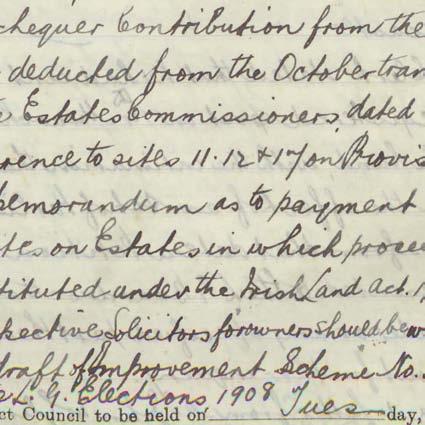 chequer Contribution from the
deducted from the October tran
Estates Commissioners, dated
rence to sites 11. 12 & 17 on Provis
Memorandum as to payment
tes on Estates in which procee
tituted under the Irish Land Act. 1
spective Solicitors for owners should be w
draft of Improvement Scheme No.
L. G. Elections 1908
ct Council to be held on Tues day,